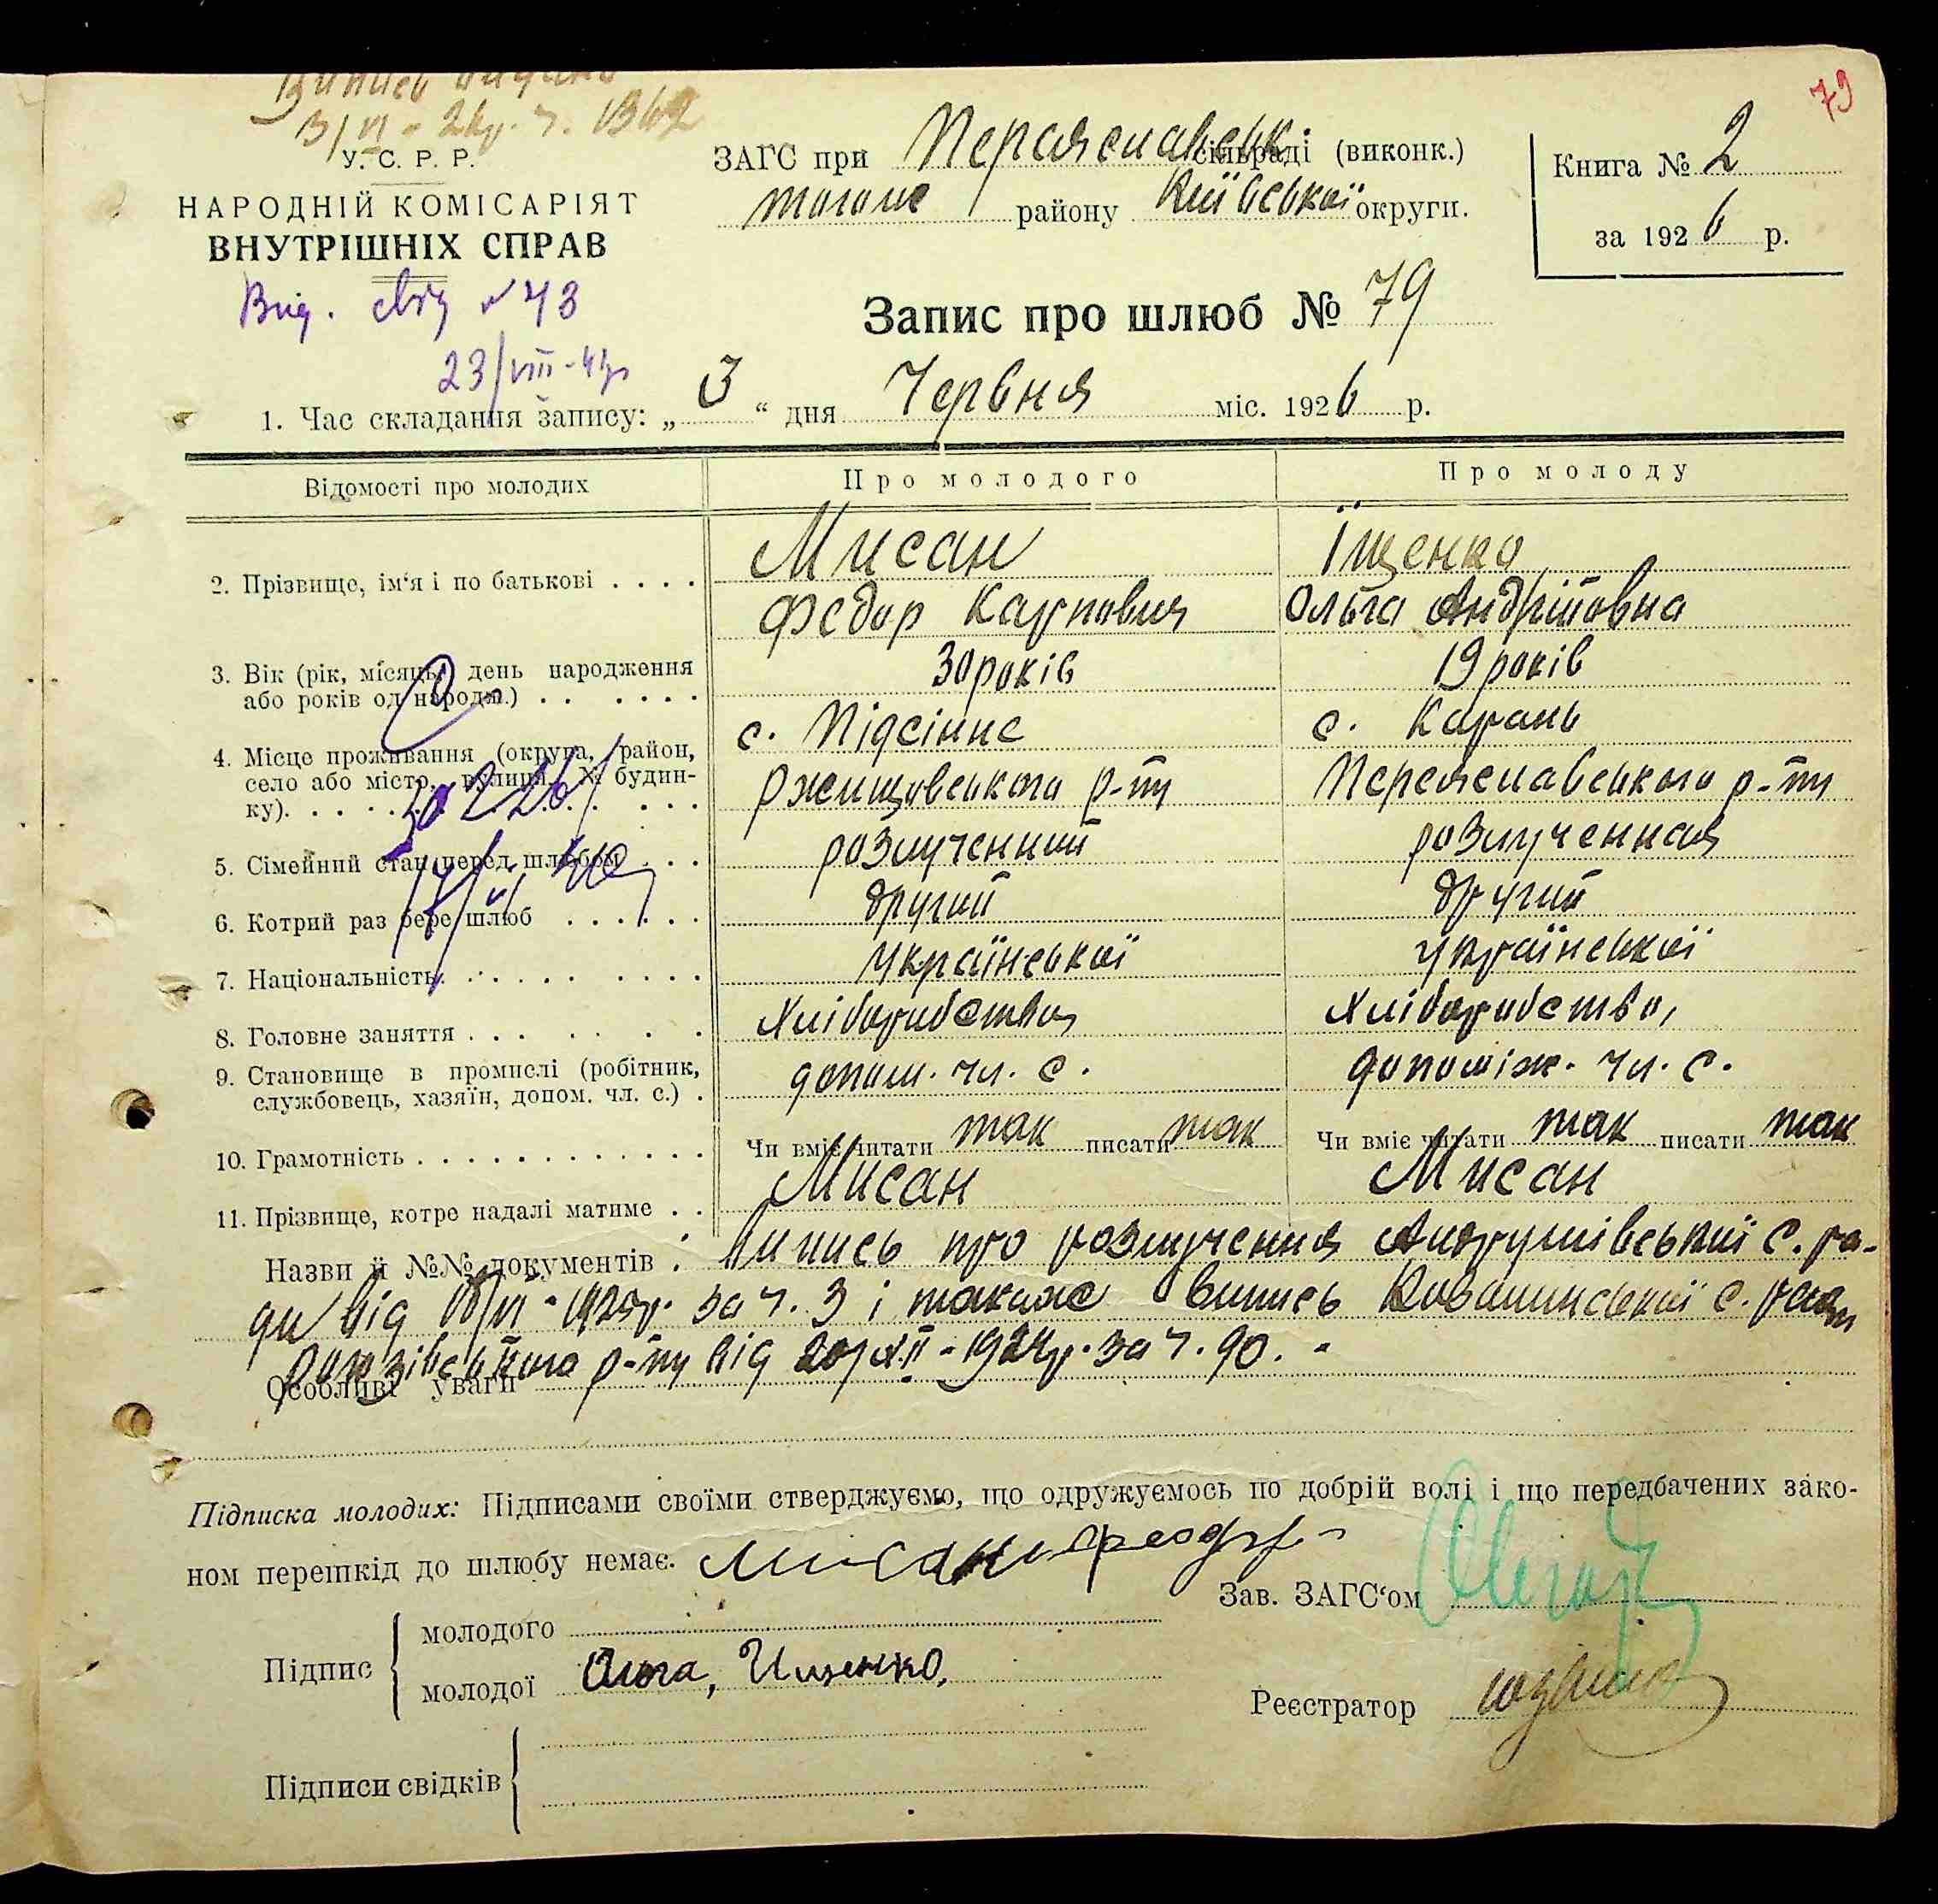 79
3/VI - 26р. ч. 1362
У. С. Р. Р.
НАРОДНІЙ КОМІСАРІЯТ
ВНУТРІШНІХ СПРАВ
Вид. свід №43
23/VIII-41р
ЗАГС при Переяславськ сільраді (виконк.)
району Київської округи.
Книга № 2
за 1926 р.
Запис про шлюб № 79
1. Час складання запису: „ 3 “ дня Червня міс. 1926 р.
Відомості про молодих Про молодого Про молоду
2. Прізвище, ім‘я і по батькові . . . . Мисан Їщенко
Федор Карпович Ольга Андрійовна
3. Вік (рік, місяць, день народження
або років од народж.) . . . . . . 30 років 19 років
4. Місце проживання (округа, район, с. Підсінне с. Карань
село або місто, вулиця, № будин-
ку). . . . Ржищовського р-ну Переяславського р-ну
5. Сімейний стан перед шлюбом . . . розлучений розлученная
6. Котрий раз бере шлюб . . . . . . другий другий
7. Національність . . . . . . . . української української
8. Головне заняття . . . . . . . Хліборобство Хліборобство,
9. Становище в промислі (робітник,
службовець, хазяїн, допом. чл. с.) . допом. чл. с. допоміж. чл. с.
10. Грамотність . . . . . . . . . . . . Чи вміє читати так писати так Чи вміє читати так писати так
11. Прізвище, котре надалі матиме . . Мисан Мисан
Назви й №№ документів : Випись про розлучення Андрушівської с. ра-
ди від /VI - 1925р. за ч. 3 і також випись Ковалинської с. ради
р-ну від 20/XII - 1924р. за ч. 90. -
Особливі уваги
Підписка молодих: Підписами своїми стверджуємо, що одружуємось по добрій волі і що передбачених зако-
ном перешкід до шлюбу немає. Мисан Феодр
Зав. ЗАГС‘ом
Підпис
молодого
молодої Ольга, Ищенко,
Реєстратор
Підписи свідків